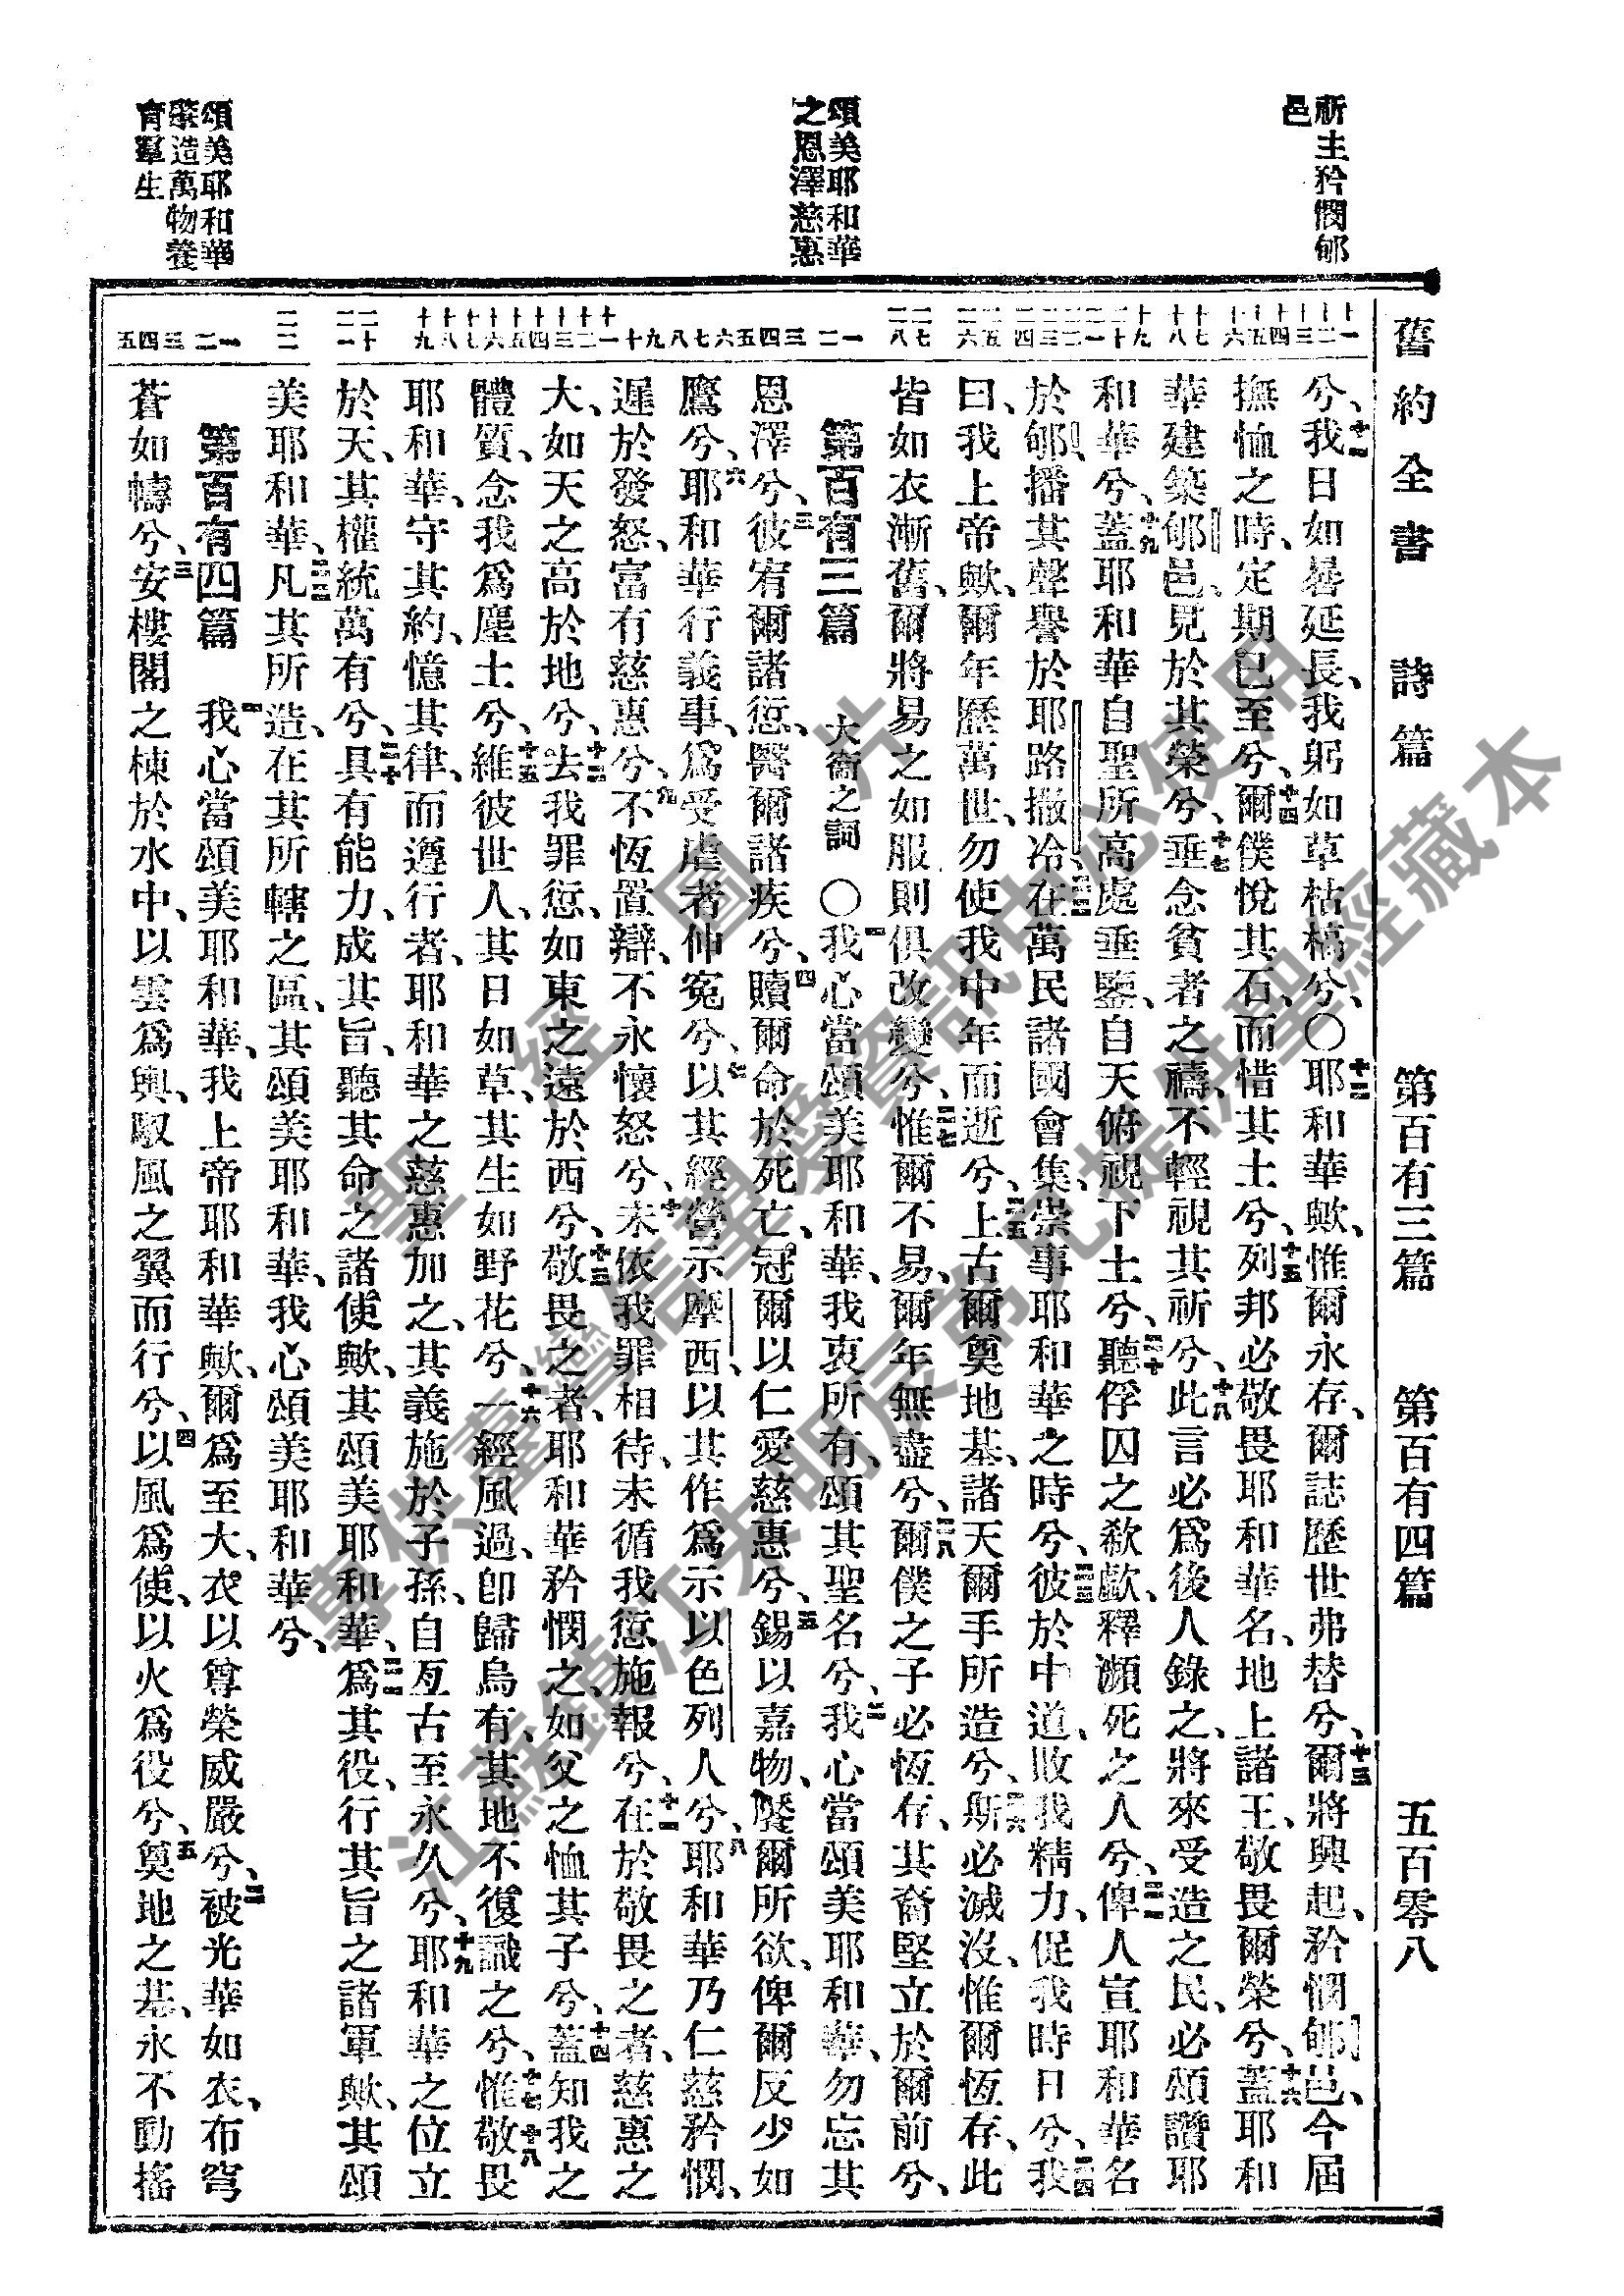 祈主矜憫郇
邑
頌美耶和華
之恩澤慈惠
頌美耶和華
肇造萬物養
育羣生
舊約全書 詩篇 第百有三篇 第百有四篇 五百零八
十一 十二 十三 十四 十五 十六 十七 十八 十九 二十 二一 二二 二三 二四 二五 二六 二七 二八 一 二 三 四 五 六 七 八 九 十 十一 十二 十三 十四 十五 十六 十七 十八 十九 二十 二一 二二 一 二 三 四 五
兮、十一我日如晷延長、我躬如草枯槁兮、〇十二耶和華歟、惟爾永存、爾誌歷世弗替兮、十三爾將興起、矜憫郇邑、今屆
撫恤之時、定期已至兮、十四爾僕悅其石、而惜其土兮、十五列邦必敬畏耶和華名、地上諸王、敬畏爾榮兮、十六蓋耶和
華建築郇邑、見於其榮兮、十七垂念貧者之禱、不輕視其祈兮、十八此言必爲後人錄之、將來受造之民、必頌讚耶
和華兮、十九蓋耶和華自聖所高處垂鑒、自天俯視下土兮、二十聽俘囚之欷歔、釋瀕死之人兮、二一俾人宣耶和華名
於郇、播其聲譽於耶路撒冷、二二在萬民諸國會集、崇事耶和華之時兮、二三彼於中道、敗我精力、促我時日兮、二四我
曰、我上帝歟、爾年歷萬世、勿使我中年而逝兮、二五上古爾奠地基、諸天爾手所造兮、二六斯必滅沒、惟爾恆存、此
皆如衣漸舊、爾將易之如服、則俱改變兮、二七惟爾不易、爾年無盡兮、二八爾僕之子必恆存、其裔堅立於爾前兮、
第百有三篇 大衛之詞 〇一我心當頌美耶和華、我衷所有、頌其聖名兮、二我心當頌美耶和華、勿忘其
恩澤兮、三彼宥爾諸愆、醫爾諸疾兮、四贖爾命於死亡、冠爾以仁愛慈惠兮、五錫以嘉物、饜爾所欲、俾爾反少如
鷹兮、六耶和華行義事、爲受虐者伸冤兮、七以其經營示摩西、以其作爲示以色列人兮、八耶和華乃仁慈矜憫、
遲於發怒、富有慈惠兮、九不恆置辯、不永懷怒兮、十未依我罪相待、未循我愆施報兮、十一在於敬畏之者、慈惠之
大、如天之高於地兮、十二去我罪愆、如東之遠於西兮、十三敬畏之者、耶和華矜憫之、如父之恤其子兮、十四蓋知我之
體質、念我爲塵土兮、十五維彼世人、其日如草、其生如野花兮、十六一經風過、卽歸烏有、其地不復識之兮、十七惟敬畏十八
耶和華、守其約、憶其律、而遵行者、耶和華之慈惠加之、其義施於子孫、自亙古至永久兮、十九耶和華之位立
於天、其權統萬有兮、二十具有能力、成其旨、聽其命之諸使歟、其頌美耶和華、二一爲其役、行其旨之諸軍歟、其頌
美耶和華、二二凡其所造、在其所轄之區、其頌美耶和華、我心頌美耶和華兮、
第百有四篇 一我心當頌美耶和華、我上帝耶和華歟、爾爲至大、衣以尊榮威嚴兮、二被光華如衣、布穹
蒼如幬兮、三安樓閣之棟於水中、以雲爲輿、馭風之翼而行兮、四以風爲使、以火爲役兮、五奠地之基、永不動搖
聖經圖片
專供臺灣信望愛資訊中心使用
江蘇鎮江朱明 兄提供聖經藏本